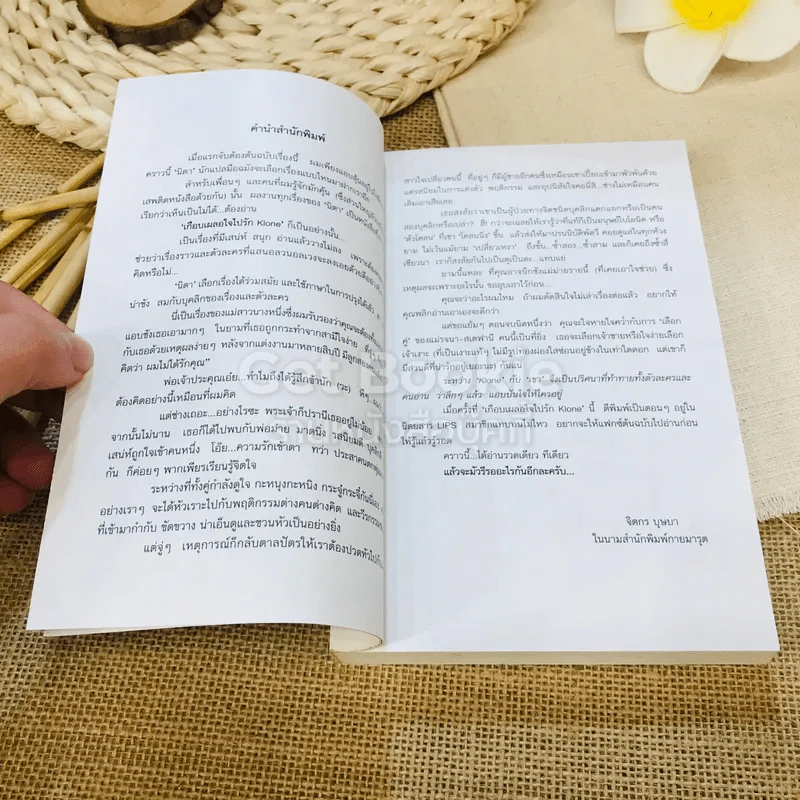 คำนำสำนักพิมพ์
เมื่อแรกจับต้องต้นฉบับเรื่องนี้ ผมเพียงแอบลุ้นอยู่ในใจ
คราวนี้ "นิดา" นักแปลมือฉมังจะเลือกเรื่องแบบไหนมาฝากเราอีก
สำหรับเพื่อนๆ และคนที่ผมรู้จักมักคุ้น (ซึ่งส่วนใหญ่
เสพติดหนังสือด้วยกัน) นั้น ผลงานทุกเรื่องของ "นิดา" เป็น
เรียกว่าเห็นเป็นไม่ได้...ต้องอ่าน
'เกือบเผลอใจไปรัก Klone' ก็เป็นอย่างนั้น...
เป็นเรื่องที่มีเสน่ห์ สนุก อ่านแล้ววางไม่ลง เพราะต้อง
ช่วยว่าเรื่องราวและตัวละครที่แสนอลวนอลเวงจะลงเอยด้วยดีอย่าง
คิดหรือไม่...
"นิดา" เลือกเรื่องได้ร่วมสมัย และใช้ภาษาในการปรุงได้แล้ว
น่าชัง สมกับบุคลิกของเรื่องและตัวละคร
นี่เป็นเรื่องของแม่สาวนางหนึ่งซึ่งผมรับรองว่าคุณจะต้อง
แอบชังเธอเอามากๆ ในยามที่เธอถูกกระทำจากสามีใจง่าย ที่
กับเธอด้วยเหตุผลง่ายๆ หลังจากแต่งงานมาหลายสิบปี มีลูกสอง
คิดว่า ผมไม่ได้รักคุณ"
พ่อเจ้าประคุณเอ๋ย...ทำไมถึงได้รู้สึกช้านัก (วะ)
ต้องคิดอย่างนี้เหมือนที่ผมคิด
แต่ช่างเถอะ...อย่างไรซะ พระเจ้าก็ปรานีเธออยู่
จากนั้นไม่นาน เธอก็ได้ไปพบกับพ่อม่าย มาดนิ่ง รสนิยมดี
เสน่ห์ถูกใจเข้าคนหนึ่ง โอ๊ย...ความรักเข้าตา ทว่า ประสาคน
กัน ก็ค่อยๆ พากเพียรเรียนรู้จิตใจ
ระหว่างที่ทั้งคู่กำลังดูใจ กะหนุงกะหนิง กระจู๋กระจี๋กัน
อย่างเราๆ จะได้หัวเราะไปกับพฤติกรรมต่างคนต่างคิด และวีรกรรม
ที่เข้ามากำกับ ขัดขวาง น่าเอ็นดูและชวนหัวเป็นอย่างยิ่ง
แต่จู่ๆ เหตุการณ์ก็กลับตาลปัตรให้เราต้องปวดหัวไป
สาวใจเปลี่ยวคนนี้ ที่อยู่ๆ ก็มีผู้ชายอีกคนซึ่งเหมือนเขาเปี๊ยบเข้ามาพัวพันด้วย
แต่รสนิยมในการแต่งตัว พฤติกรรม และอุปนิสัยใจคอนี่สิ...ช่างไม่เหมือนคน
เดิมเอาเสียเลย
เธอสงสัยว่าเขาเป็นผู้ป่วยทางจิตชนิดบุคลิกแตกแยกหรือเป็นคน
สองบุคลิกหรือเปล่า? สิ! กว่าจะเฉลยให้เรารู้ว่าที่แท้ก็เป็นมนุษย์ไบโอนิค หรือ
'ตัวโคลน' ที่เขา 'โคลนนิ่ง' ขึ้น แล้วส่งให้มาปรนนิบัติพัดวี คอยดูแลในทุกห้วง
ยาม ไม่เว้นแม้ยาม 'เปลี่ยวเหงา' ถึงขั้น...ช้ำสอง...ช้ำสาม และก็เคยถึงช้ำสี่
เชียวนา เราก็สงสัยกันไปเป็นตุเป็นตะ...แทบแย่
ยามนี้แหละ ที่คุณอาจนึกชังแม่ม่ายรายนี้ (ที่เคยเอาใจช่วย) ซึ่ง
เหตุผลจะเพราะอะไรนั้น ขออุบเอาไว้ก่อน...
คุณจะว่าอะไรผมไหม ถ้าผมตัดสินใจไม่เล่าเรื่องต่อแล้ว อยากให้
คุณพลิกอ่านเอาเองจะดีกว่า
แต่ขอแย้มๆ ตอนจบนิดหนึ่งว่า คุณจะใจหายใจคว่ำกับการ 'เลือก
คู่' ของแม่รจนา-สเตฟานี คนนี้เป็นที่ยิ่ง เธอจะเลือกเจ้าชายหรือใจง่ายเลือก
เจ้าเงาะ (ที่เป็นเงาะแท้ๆ ไม่มีรูปทองผ่องใสซ่อนอยู่ข้างในเท่าใดดอก แต่เขาก็
มีส่วนดีที่น่ารักอยู่เยอะนะ) กันแน่
ระหว่าง 'Klone' กับ 'เรา' จึงเป็นปริศนาที่ท้าทายทั้งตัวละครและ
คนอ่าน ว่าลึกๆ แล้ว แอบปันใจให้ใครอยู่
เมื่อครั้งที่ 'เกือบเผลอใจไปรัก Klone' นี้ ตีพิมพ์เป็นตอนๆ อยู่ใน
นิตยสาร LIPS สมาชิกแทบทนไม่ไหว อยากจะให้แฟกซ์ต้นฉบับไปอ่านก่อน
ให้รู้แล้วรู้รอด
คราวนี้...ได้อ่านรวดเดียว ทีเดียว
แล้วจะมัวรีรออะไรกันอีกละครับ...
จิตกร บุษบา
ในนามสำนักพิมพ์กายมารุต
Get Bookie
ร้านหนังสือบุคกี้